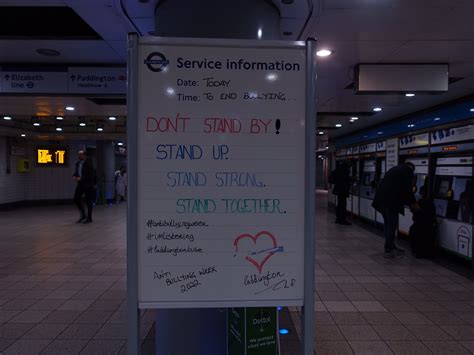 Elizabeth
line
Paddington
Service information
Date: TODAY
Time: TO END BULLYING...
DON'T STAND BY!
STAND UP.
STAND STRONG.
STAND TOGETHER.
#antibullyingweek
#imlistening
#paddingtontube
ANTI
BULLYING WEEK
2022
Paddington